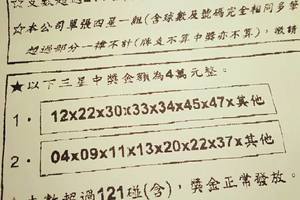 ☆本公司單張四星一組(含球數及號碼完全相同多筆
超過部分一律不計(牌支不算中獎亦不算),敬請
★以下三星中獎金額為4萬元整。
1. 12x22x30x33x34x45x47x其他
2. 04x09x11x13x20x22x37x其他
數超過121碰(含),獎金正常發放。